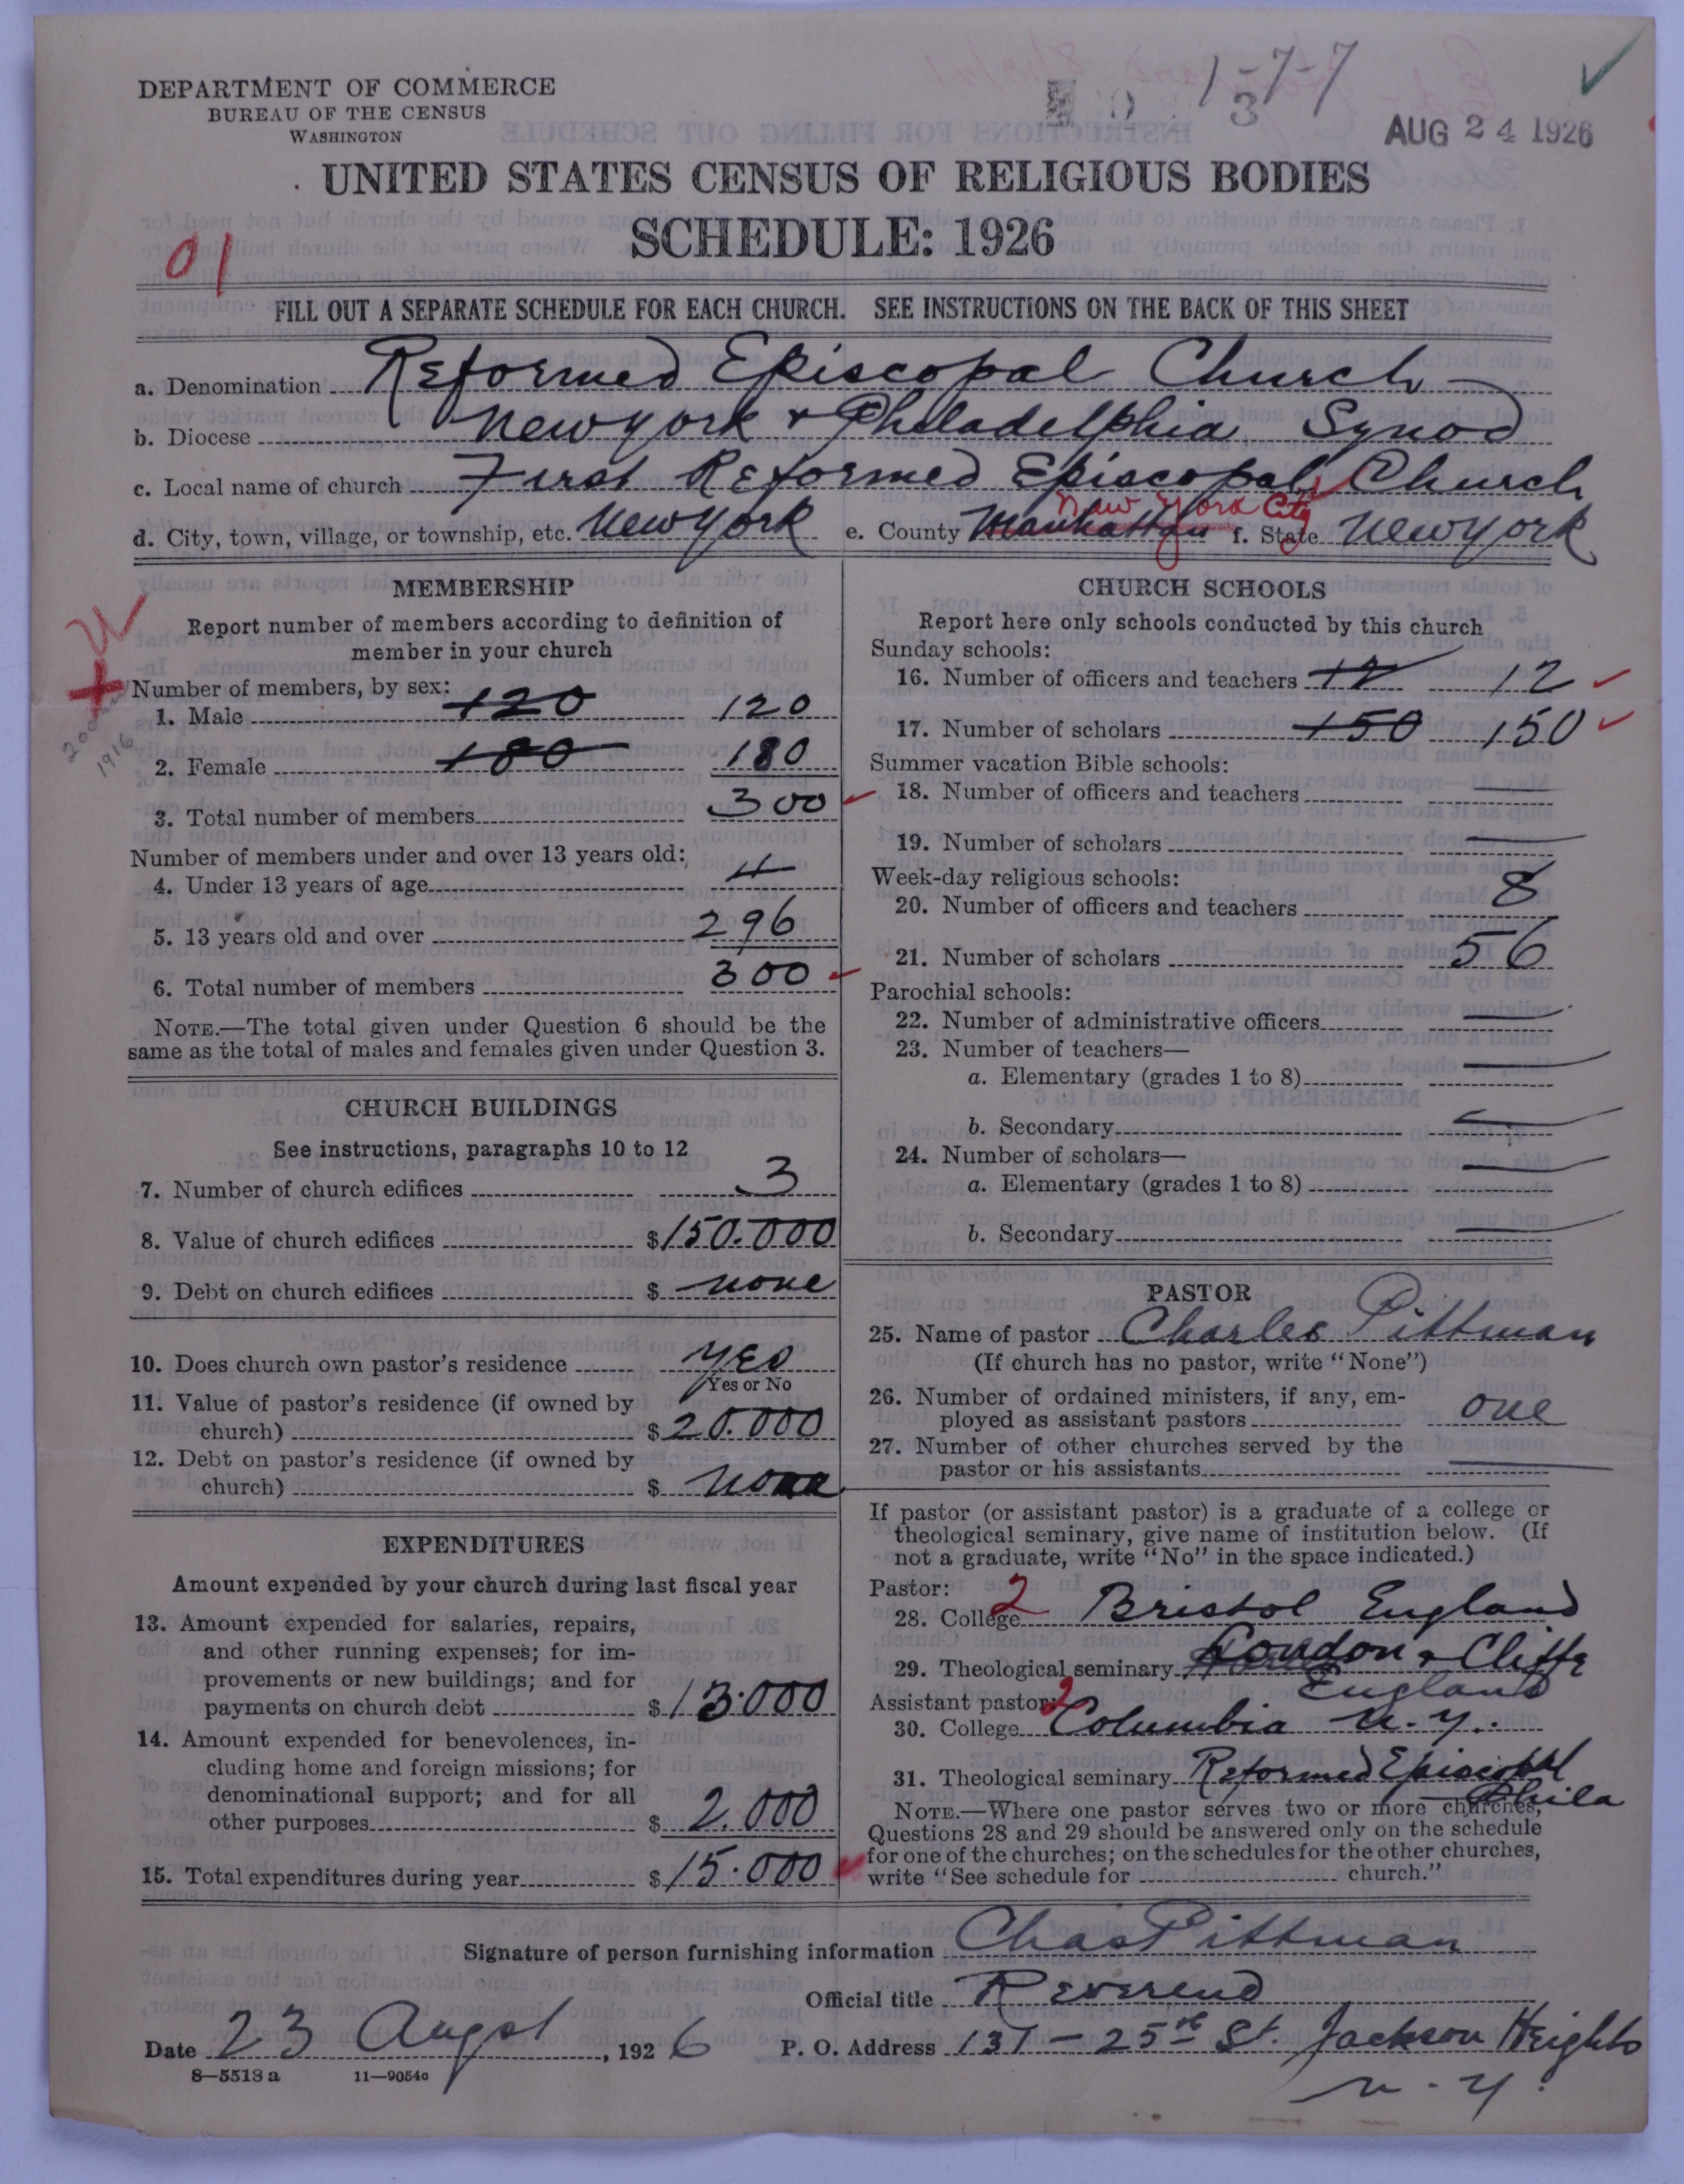 DEPARTMENT OF COMMERCE
BUREAU OF THE CENSUS
WASHINGTON
1-7-7
3
AUG 24 1926
UNITED STATES CENSUS OF RELIGIOUS BODIES
SCHEDULE: 1926
01
FILL OUT A SEPARATE SCHEDULE FOR EACH CHURCH. SEE INSTRUCTIONS ON THE BACK OF THIS SHEET
a. Denomination Reformed Episcopal Church
b. Diocese New York & Philadelphia Synod
c. Local name of church First Reformed Episcopal Church
New York City
d. City, town, village, or township, etc. New York e. County Manhattan f. State New York
MEMBERSHIP
Report number of members according to definition of
member in your church
Number of members, by sex:
1. Male 120 120
2. Female 180 180
200
1916
3. Total number of members 300
Number of members under and over 13 years old:
4. Under 13 years of age 4
5. 13 years old and over 296
6. Total number of members 300
NOTE.—The total given under Question 6 should be the
same as the total of males and females given under Question 3.
CHURCH BUILDINGS
See instructions, paragraphs 10 to 12
7. Number of church edifices 3
8. Value of church edifices $150.000
9. Debt on church edifices $ none
10. Does church own pastor's residence Yes
Yes or No
11. Value of pastor's residence (if owned by
church) $20.000
12. Debt on pastor's residence (if owned by
church) $ none
EXPENDITURES
Amount expended by your church during last fiscal year
13. Amount expended for salaries, repairs,
and other running expenses; for im-
provements or new buildings; and for
payments on church debt $13.000
14. Amount expended for benevolences, in-
cluding home and foreign missions; for
denominational support; and for all
other purposes $2.000
15. Total expenditures during year $15.000
CHURCH SCHOOLS
Report here only schools conducted by this church
Sunday schools:
16. Number of officers and teachers 12 12
17. Number of scholars 150 150
Summer vacation Bible schools:
18. Number of officers and teachers —
19. Number of scholars —
Week-day religious schools:
20. Number of officers and teachers 8
21. Number of scholars 56
Parochial schools:
22. Number of administrative officers —
23. Number of teachers—
a. Elementary (grades 1 to 8) —
b. Secondary —
24. Number of scholars—
a. Elementary (grades 1 to 8) —
b. Secondary —
PASTOR
25. Name of pastor Charles Pittman
(If church has no pastor, write "None")
26. Number of ordained ministers, if any, em-
ployed as assistant pastors one
27. Number of other churches served by the
pastor or his assistants —
If pastor (or assistant pastor) is a graduate of a college or
theological seminary, give name of institution below. (If
not a graduate, write "No" in the space indicated.)
Pastor:
28. College 2 Bristol England
29. Theological seminary London & Cliffe
England
Assistant pastor: 2
30. College Columbia N.Y.
31. Theological seminary Reformed Episcopal
Phila
NOTE.—Where one pastor serves two or more churches,
Questions 28 and 29 should be answered only on the schedule
for one of the churches; on the schedules for the other churches,
write "See schedule for church."
Signature of person furnishing information Chas Pittman
Official title Reverend
Date 23 Augst, 1926 P. O. Address 137 - 25th St. Jackson Heights
N.Y.
8—5513a 11—9054c